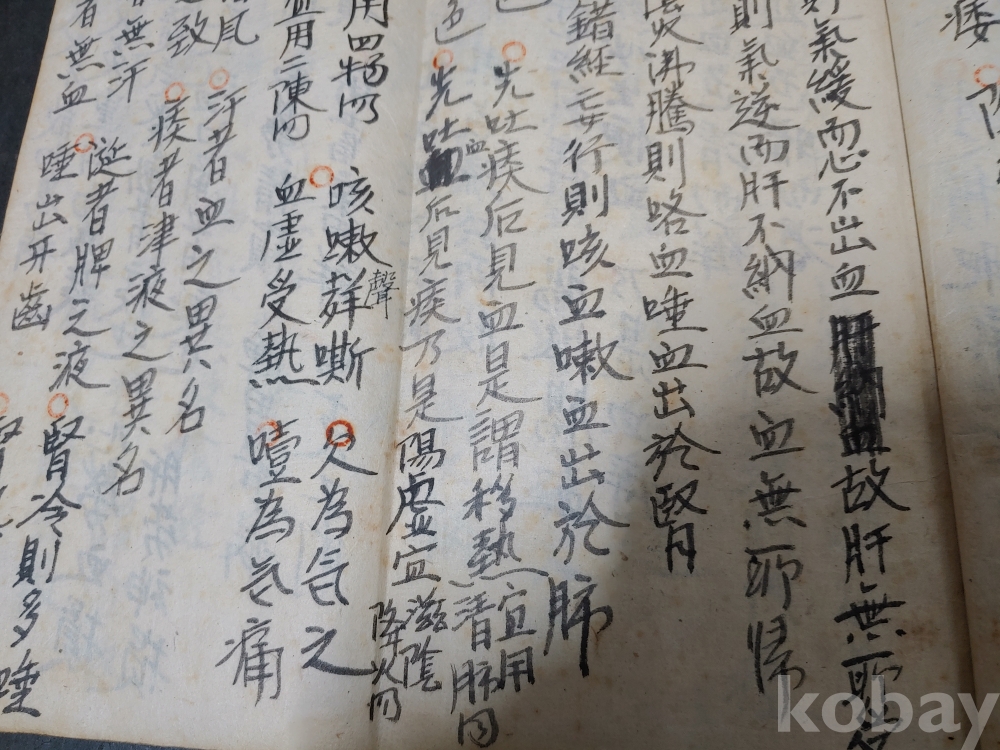 痿
氣緩而心不出血故肝無所
則氣逆而肝不納血故血無所歸
火沸騰則咯血唾血出於腎
錯經妄行則咳血嗽血出於肺
先吐痰后見血是謂移熱宜用清肺
色
先吐血后見痰乃是陽虛宜滋陰降火
用四物
咳嗽聲嘶
久為氣之
宜用二陳
血虛受熱
噎為氣痛
汗者血之異名
致
痰者津液之異名
者無汗
涎者脾之液
者無血
唾出牙齒
腎冷則多唾
kobay